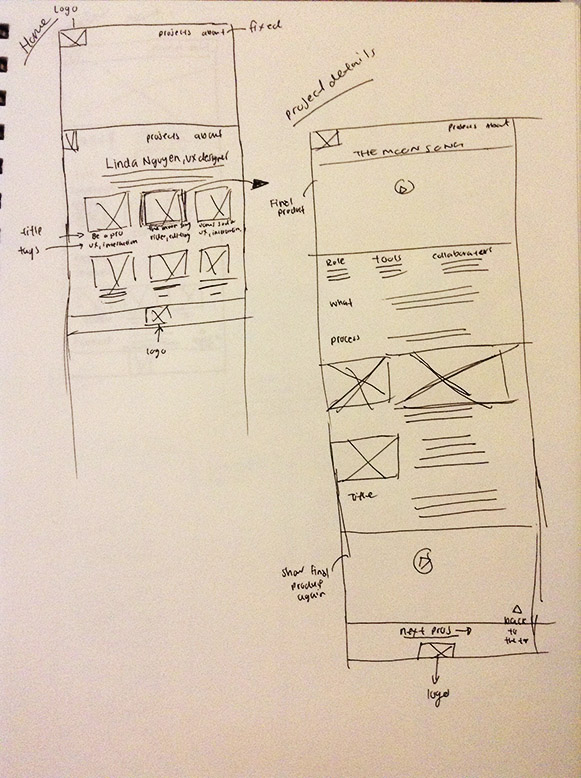 Home
logo
projects about
fixed
projects about
Linda Nguyen, ux designer
title
tags
Be a pro
ux, interaction
the moon song
video, editing
ux, interaction
logo
project details
projects About
THE MOON SONG
Final
product
Role
tools
collaborators
what
process
Title
show final
product
again
next proj →
back
to
the top
logo